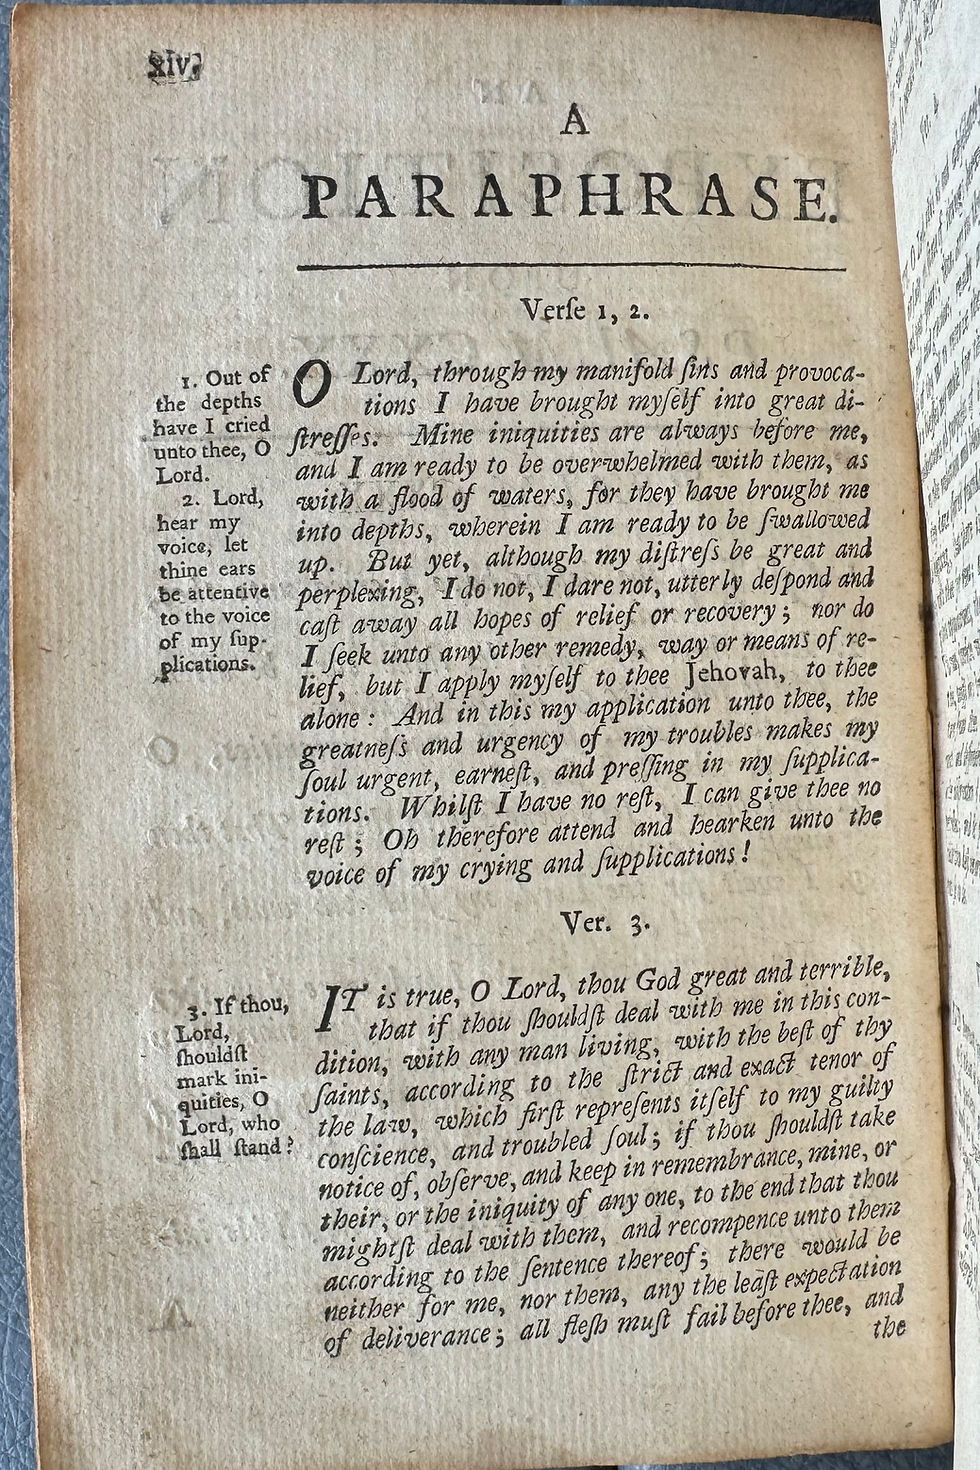 xiv.
A
PARAPHRASE.
Verſe 1, 2.
1. Out of
the depths
have I cried
unto thee, O
Lord.
2. Lord,
hear my
voice, let
thine ears
be attentive
to the voice
of my ſup-
plications.
O Lord, through my manifold ſins and provoca-
tions I have brought myſelf into great di-
ſtreſſes. Mine iniquities are always before me,
and I am ready to be overwhelmed with them, as
with a flood of waters, for they have brought me
into depths, wherein I am ready to be ſwallowed
up. But yet, although my diſtreſs be great and
perplexing, I do not, I dare not, utterly deſpond and
caſt away all hopes of relief or recovery; nor do
I ſeek unto any other remedy, way or means of re-
lief, but I apply myſelf to thee Jehovah, to thee
alone: And in this my application unto thee, the
greatneſs and urgency of my troubles makes my
ſoul urgent, earneſt, and preſſing in my ſupplica-
tions. Whilſt I have no reſt, I can give thee no
reſt; Oh therefore attend and hearken unto the
voice of my crying and ſupplications!
Ver. 3.
3. If thou,
Lord,
ſhouldſt
mark ini-
quities, O
Lord, who
ſhall ſtand?
IT is true, O Lord, thou God great and terrible,
that if thou ſhouldſt deal with me in this con-
dition, with any man living, with the beſt of thy
ſaints, according to the ſtrict and exact tenor of
the law, which firſt repreſents itſelf to my guilty
conſcience, and troubled ſoul; if thou ſhouldſt take
notice of, obſerve, and keep in remembrance, mine, or
their, or the iniquity of any one, to the end that thou
mightſt deal with them, and recompence unto them
according to the ſentence thereof; there would be
neither for me, nor them, any the leaſt expectation
of deliverance; all fleſh muſt fail before thee, and
the